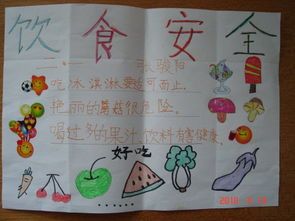 饮食安全
二、一 张骏阳
吃冰淇淋要适可而止.
艳丽的蘑菇很危险.
喝过多的果汁饮料有害健康.
好吃
2010